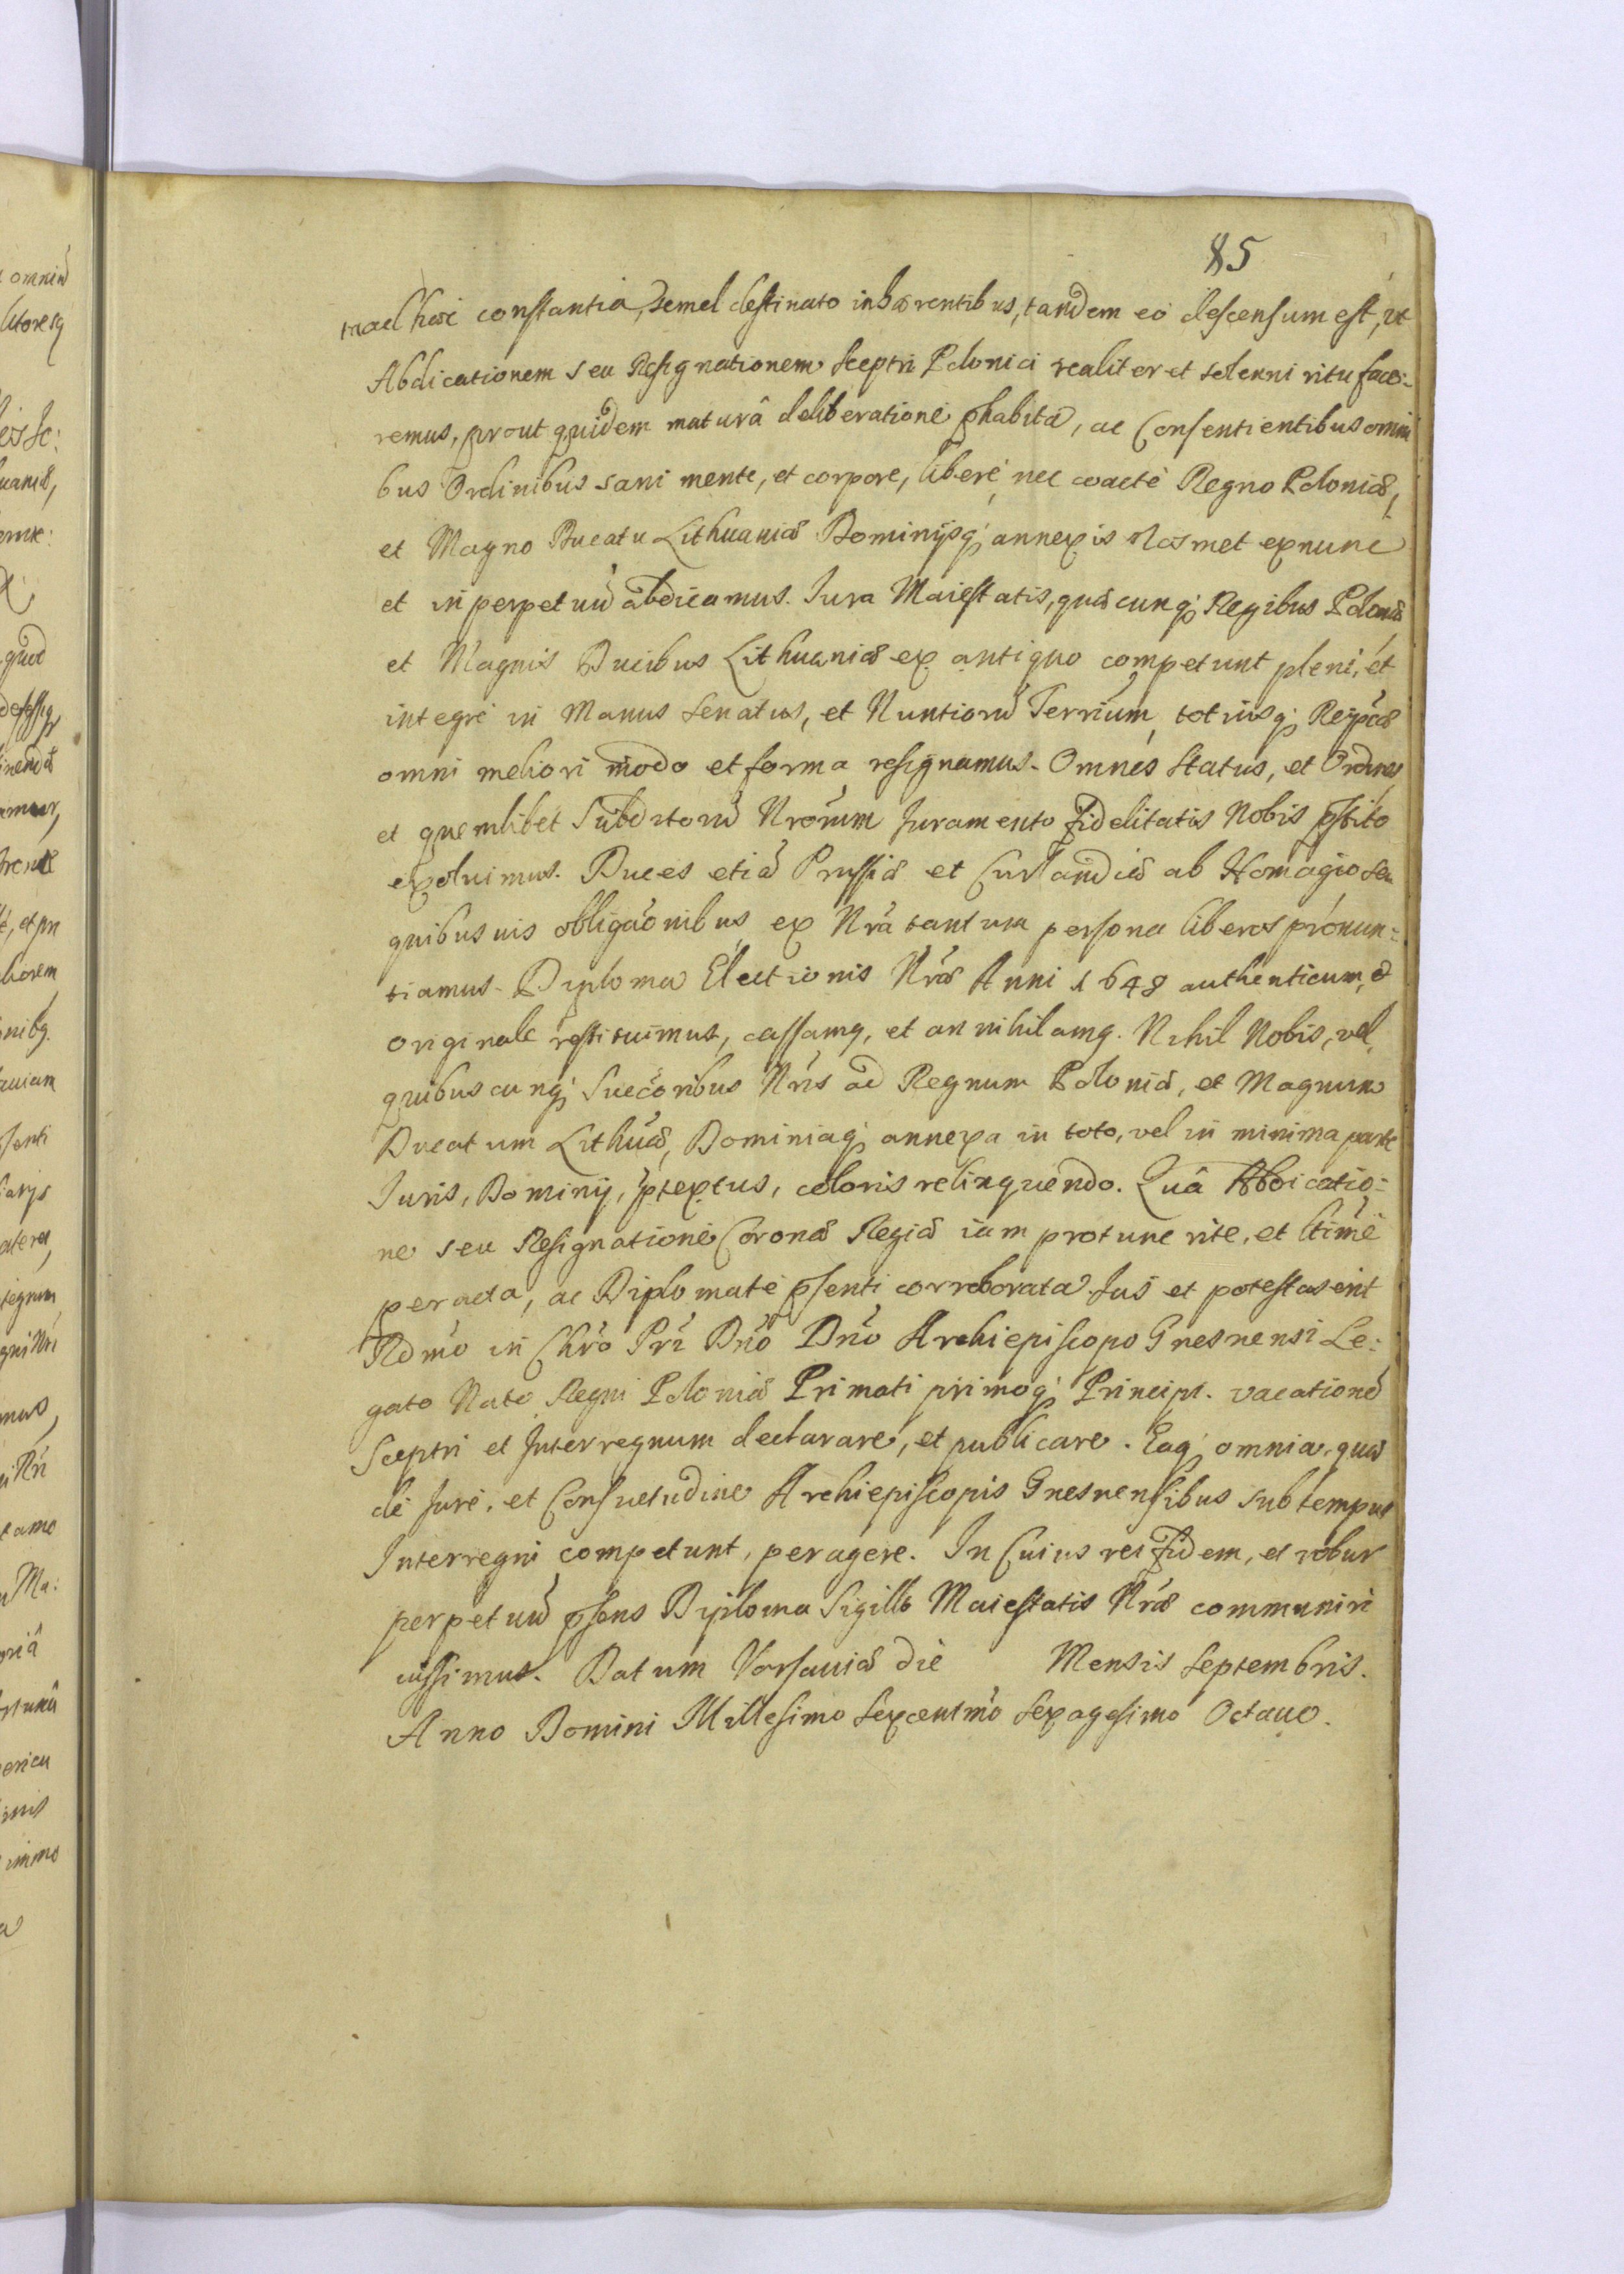 85
hæc constantia, semel destinato inhærentibus, tandem eò descensum est, ut
Abdicationem seu Resignationem Sceptri Polonici realiter et solenni ritu face:
remus, prout quidem maturâ deliberatione phabita, ac Consentientibus omni
bus Ordinibus sani mente, et corpore, liberè, nec coactè Regno Poloniæ,
et Magno Ducatu Lithuaniæ Dominijsq; annexis Nosmet exnunc
et in perpetuũ abdicamus. Iura Maiestatis, quæcunq; Regibus Poloniæ
et Magnis Ducibus Lithuaniæ ex antiquo competunt plenè, et
integrè in Manus Senatus, et Nuntiorũ Terrium, totiusq; Reipcæ
omni meliori modo et forma resignamus. Omnes Status, et Ordines
et quemlibet Subditorũ Nrorum Juramento Fidelitatis Nobis pstito
exoluimus. Duces etiã Prussiæ et Curlandiæ ab Homagio seu
quibusuis obligaõnibus ex Nra tantum persona liberos pronun:
tiamus. Diploma Electionis Nræ Anni 1648 authenticum, &
originale restituimus, cassamq, et annihilamq. Nihil Nobis, vel
quibuscunq; Succoribus Nris ad Regnum Poloniæ, et Magnum
Ducatum Lithuæ, Dominiaq; annexa in toto, vel in minima parte
Iuris, Dominij, ptextus, coloris relinquendo. Quâ Abdicatio:
ne seu Resignatione Coronæ Regiæ iam protunc rite, et ltimè
peracta, ac Diplomate psenti corroborata Jus et potestas erit
Rdmo in Chro Pri Dno Dno Archiepiscopo Gnesnensi Le:
gato Nato Regni Poloniæ Primati primoq; Principi. vacationẽ
Sceptri et Interregnum declarare, et publicare. Eaq; omnia, quæ
de Jure, et Consuetudine Archiepiscopis Gnesnensibus sub tempus
Interregni competunt, peragere. In Cuius rei Fidem, et robur
perpetuũ psens Diploma Sigillo Maiestatis Nræ communiri
iussimus. Datum Varsauiæ die Mensis Septembris.
Anno Domini Millesimo Sexcentmo Sexagesimo Octauo.